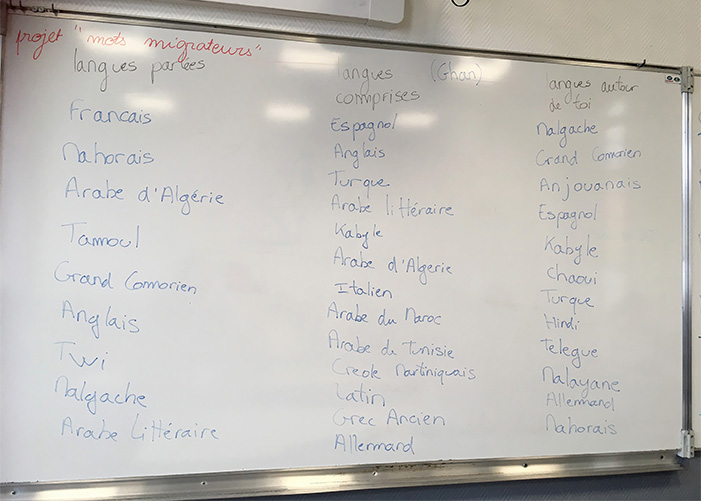 projet "mots migrateurs"
langues parlées
Francais
Mahorais
Arabe d'Algérie
Tamoul
Grand Comorien
Anglais
Twi
Malgache
Arabe Littéraire
langues (Ghan)
comprises
Espagnol
Anglais
Turque
Arabe littéraire
Kabyle
Arabe d'Algerie
Italien
Arabe du Maroc
Arabe de Tunisie
Creole Martiniquais
Latin
Grec Ancien
Allermand
langues autour
de toi
Malgache
Grand Comorien
Anjouanais
Espagnol
Kabyle
Chaoui
Turque
Hindi
Telegue
Malayane
Allermand
Mahorais